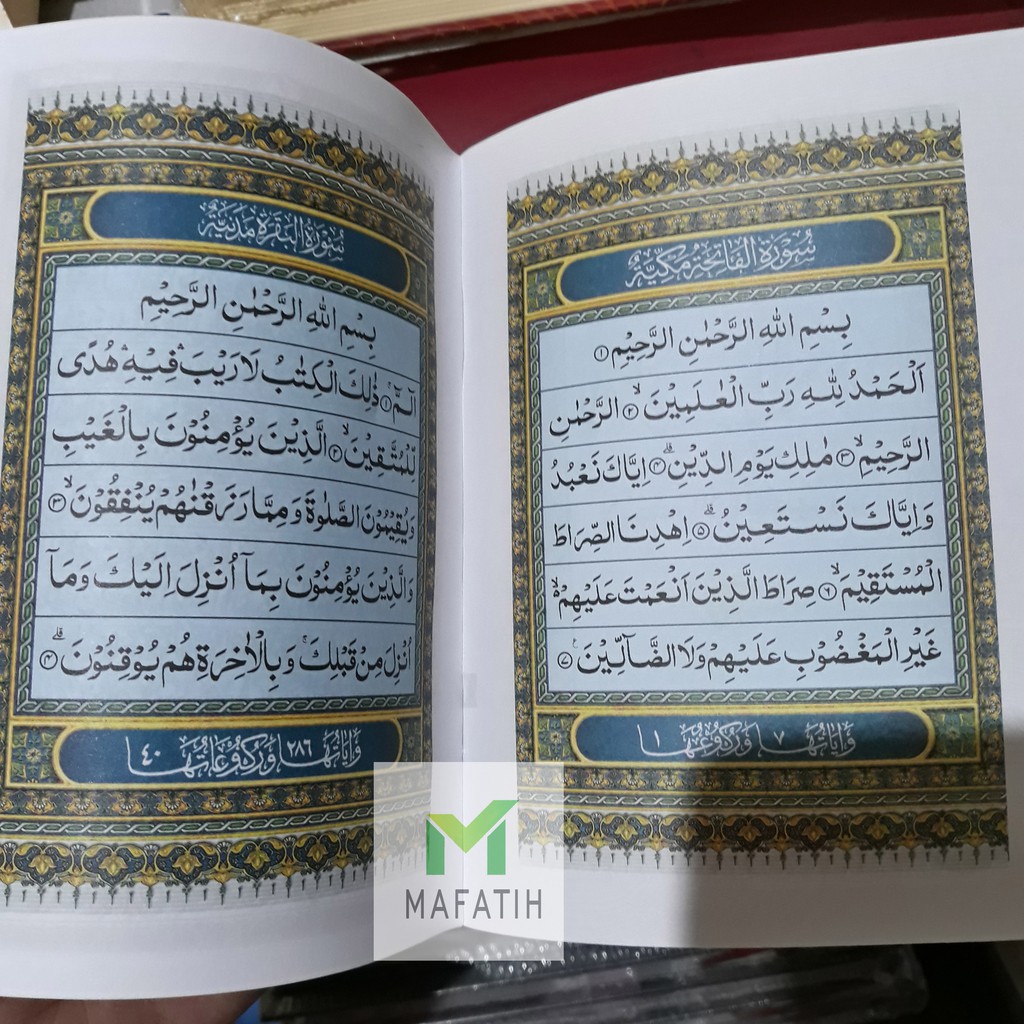 سُوْرَةُ الْفَاتِحَةِ مَكِّيَّةٌ
بِسْمِ اللّٰهِ الرَّحْمٰنِ الرَّحِيْمِ ①
اَلْحَمْدُ لِلّٰهِ رَبِّ الْعٰلَمِيْنَۙ ② الرَّحْمٰنِ
الرَّحِيْمِۙ ③ مٰلِكِ يَوْمِ الدِّيْنِۗ ④ اِيَّاكَ نَعْبُدُ
وَاِيَّاكَ نَسْتَعِيْنُۗ ⑤ اِهْدِنَا الصِّرَاطَ
الْمُسْتَقِيْمَۙ ⑥ صِرَاطَ الَّذِيْنَ اَنْعَمْتَ عَلَيْهِمْ ەۙ
غَيْرِ الْمَغْضُوْبِ عَلَيْهِمْ وَلَا الضَّآلِّيْنَ ⑦
وَاٰيَاتُهَا ٧ وَرُكُوْعُهَا ١
سُوْرَةُ الْبَقَرَةِ مَدَنِيَّةٌ
بِسْمِ اللّٰهِ الرَّحْمٰنِ الرَّحِيْمِ
الٓمّٓۚ ① ذٰلِكَ الْكِتٰبُ لَا رَيْبَۛ فِيْهِۛ هُدًى
لِّلْمُتَّقِيْنَۙ ② الَّذِيْنَ يُؤْمِنُوْنَ بِالْغَيْبِ
وَيُقِيْمُوْنَ الصَّلٰوةَ وَمِمَّا رَزَقْنٰهُمْ يُنْفِقُوْنَۙ ③
وَالَّذِيْنَ يُؤْمِنُوْنَ بِمَآ اُنْزِلَ اِلَيْكَ وَمَآ
اُنْزِلَ مِنْ قَبْلِكَۚ وَبِالْاٰخِرَةِ هُمْ يُوْقِنُوْنَۗ ④
وَاٰيَاتُهَا ٢٨٦ وَرُكُوْعَاتُهَا ٤٠
MAFATIH